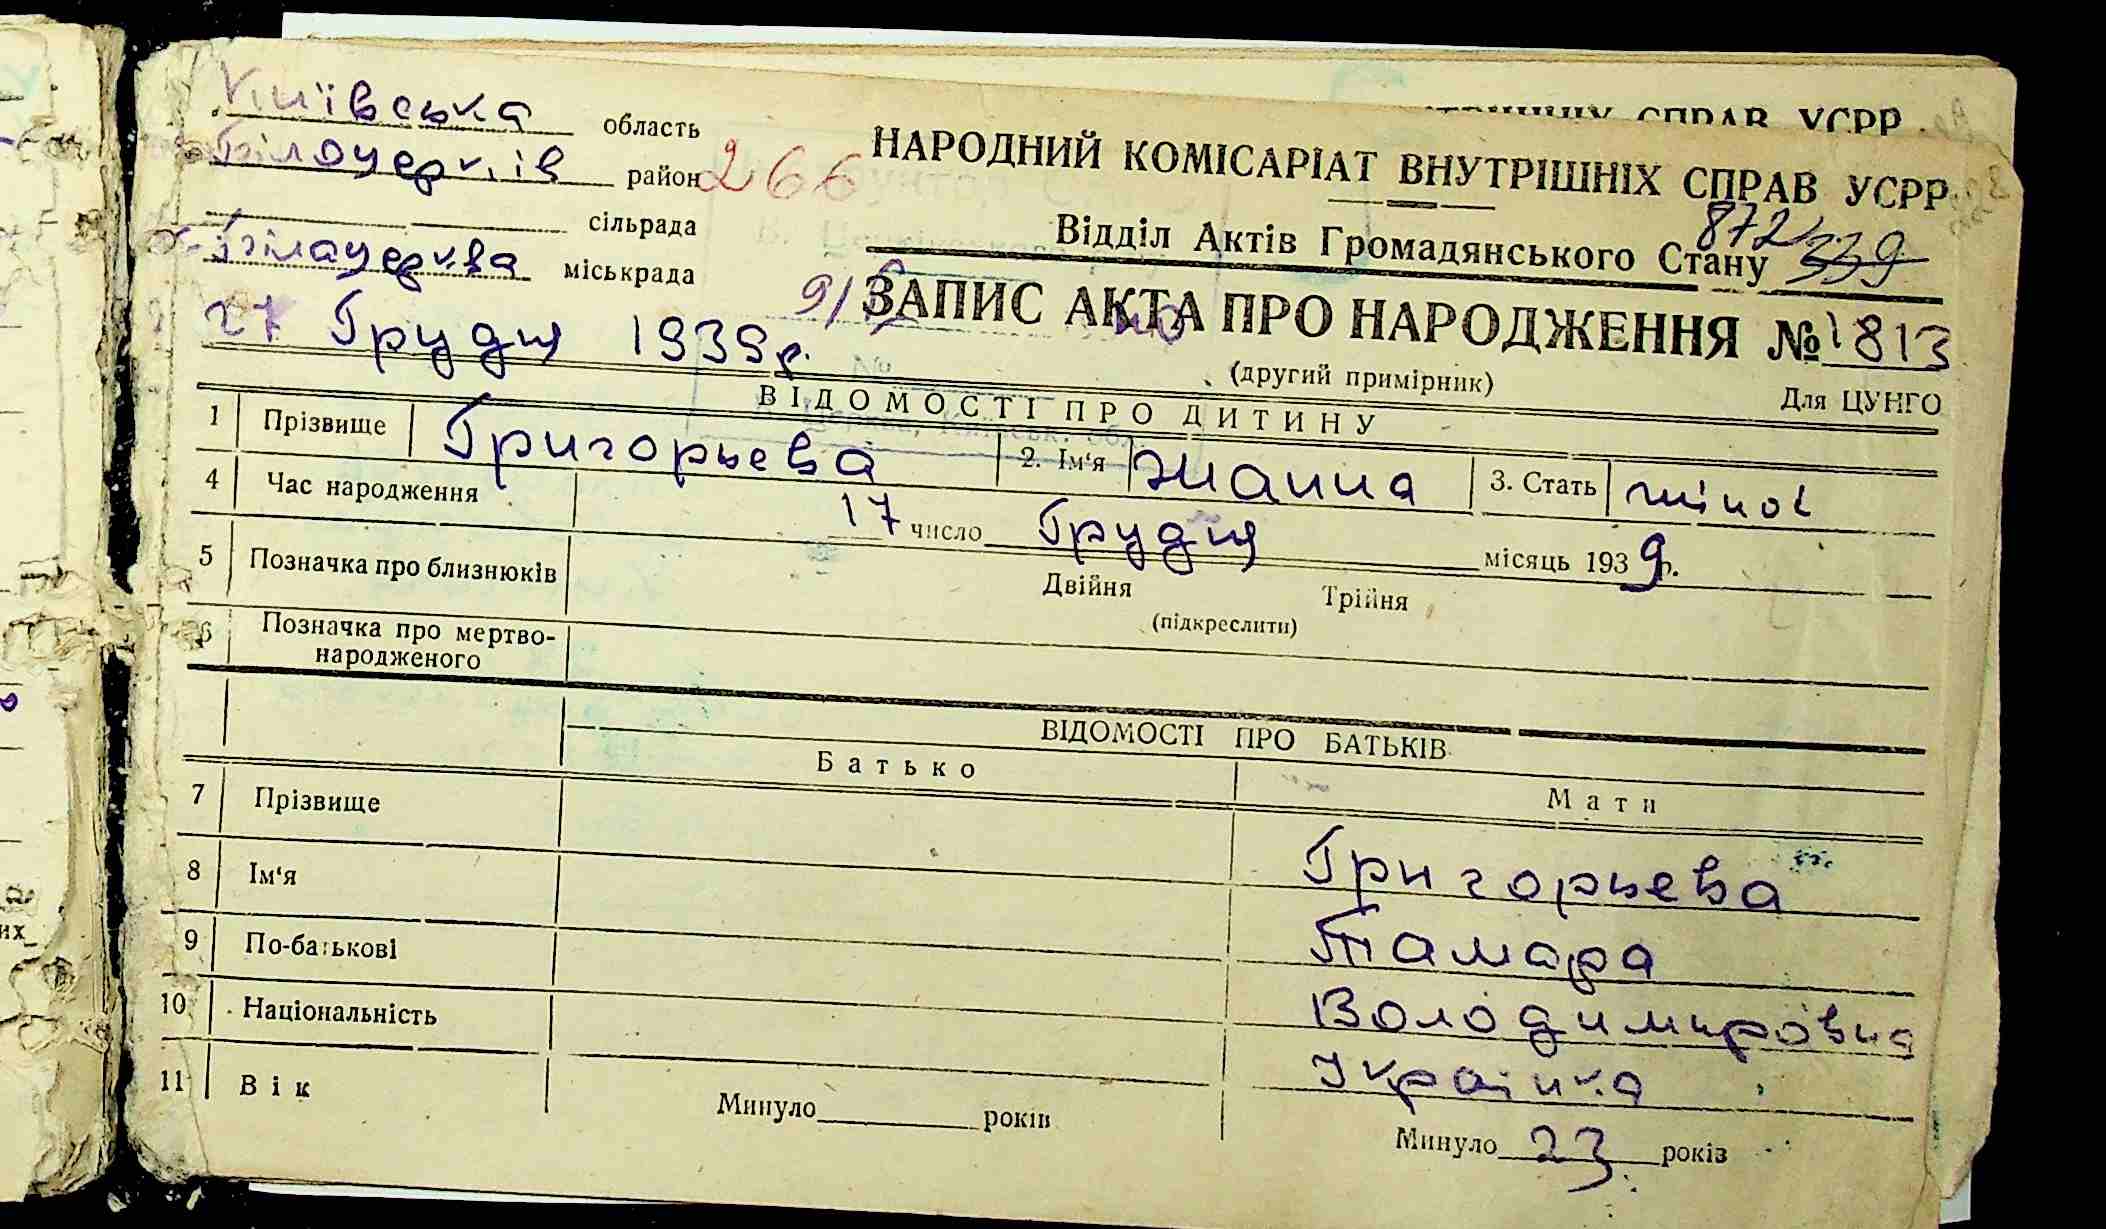 Київська область
Білоцерків район 266
сільрада
Білацерква міськрада
НАРОДНИЙ КОМІСАРІАТ ВНУТРІШНІХ СПРАВ УСРР
Відділ Актів Громадянського Стану 872 339
27 Грудня 1939 р.
ЗАПИС АКТА ПРО НАРОДЖЕННЯ № 1813
(другий примірник)
Для ЦУНГО
ВІДОМОСТІ ПРО ДИТИНУ
1 Прізвище Григорьева 2. Ім'я Жанна 3. Стать жіноч
4 Час народження 17 число Грудня місяць 1939 р.
5 Позначка про близнюків Двійня Трійня
(підкреслити)
6 Позначка про мертво-
народженого
ВІДОМОСТІ ПРО БАТЬКІВ
Батько Мати
7 Прізвище Григорьева
8 Ім'я Тамара
9 По-батькові Володимировна
10 Національність Українка
11 Вік Минуло років Минуло 23 років